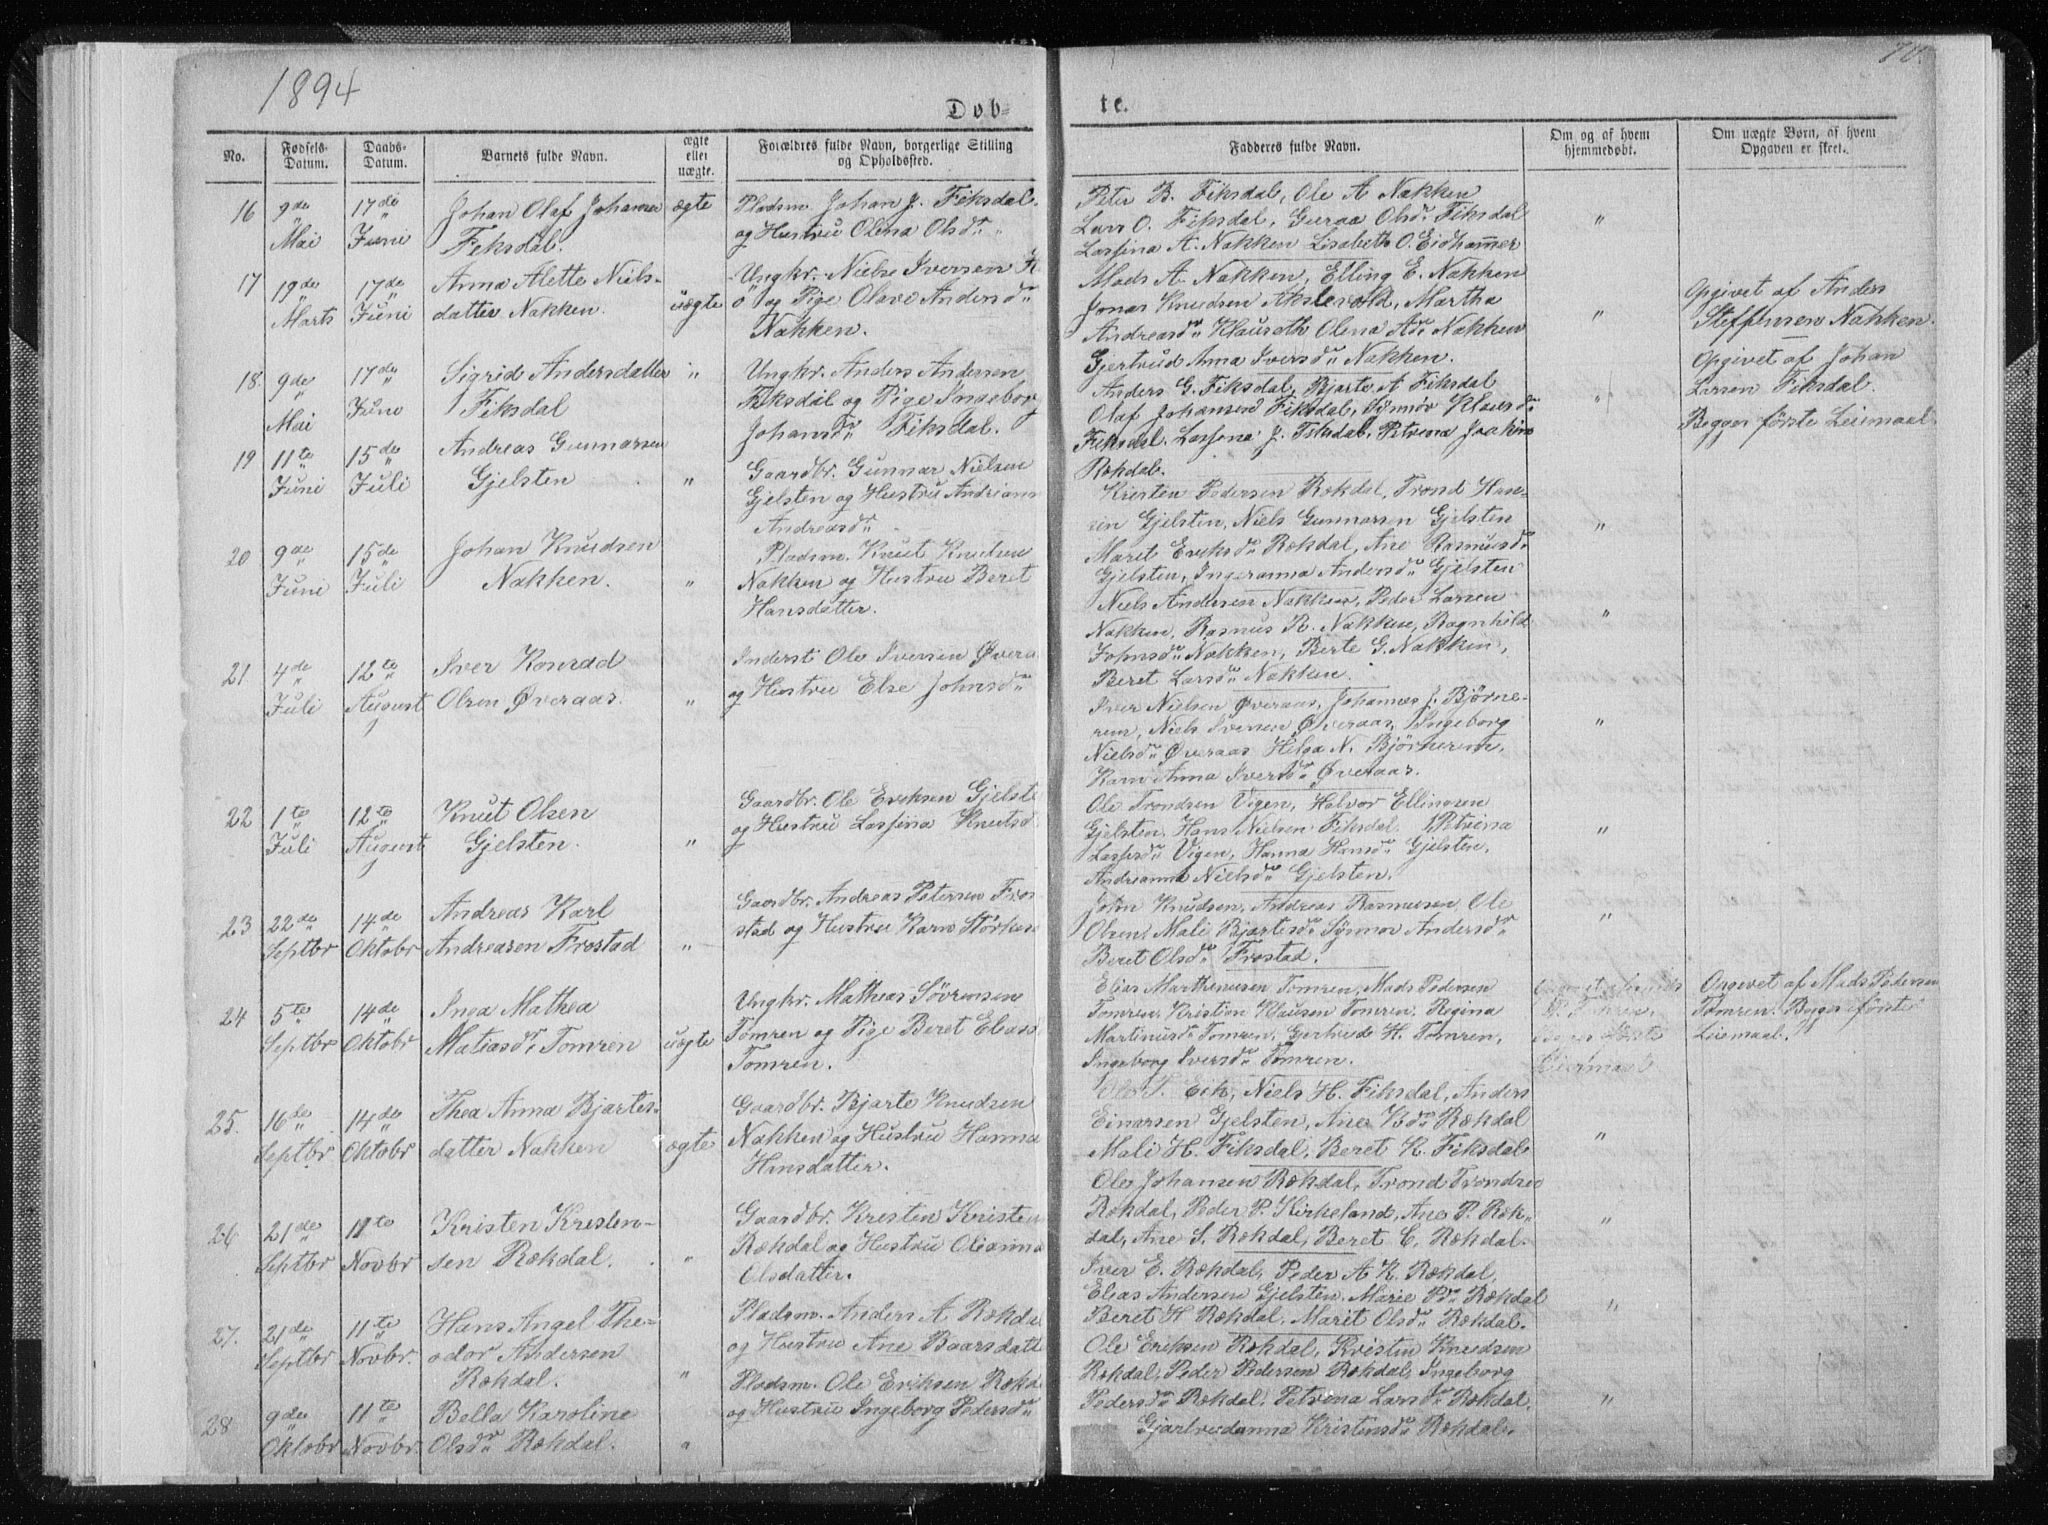 1894
70.
Døb-
te.
No.
Fødsels-
Datum.
Daabs-
Datum.
Barnets fulde Navn.
ægte
eller
uægte.
Forældres fulde Navn, borgerlige Stilling
og Opholdssted.
Fadderes fulde Navn.
Om og af hvem
hjemmedøbt.
Om uægte Børn, af hvem
Opgaven er skeet.
16
9de
Mai
17de
Juni
Johan Olaf Johansen
Fiksdal.
ægte
Pladsm. Johan J. Fiksdal
og Hustru Olena Olsdr
Peter B. Fiksdal, Ole A Nakken
Lars O. Fiksdal, Guraa Olsdr Fiksdal
Lassina A. Nakken Lisabeth O. Eidhammer
"
17
19de
Marts
17de
Juni
Anna Alette Niels-
datter Nakken.
uægte
Ungkr. Niels Iversen
og Pige Olave Andersdr
Nakken.
Mads A. Nakken, Elling E. Nakken
Jonas Knudsen Akslevold, Martha
Andreasdr Klauseth Olena Adr Nakken
Gjertrud Anna Iversdr Nakken.
"
Opgivet af Anders
Steffensen Nakken.
18.
9de
Mai
17de
Juni
Sigrid Andersdatter
Fiksdal
"
Ungkr. Anders Andersen
Fiksdal og Pige Ingeborg
Johansdr Fiksdal.
Anders G. Fiksdal, Bjarte A Fiksdal
Olaf Johansen Fiksdal, Synnøv Klausdr
Fiksdal. Lassina J. Fiksdal, Petrina
Rekdal.
"
Opgivet af Johan
Larsen Fiksdal.
Begges første Leiemaal
19
11te
Juni
15de
Juli
Andreas Gunnarsen
Gjelsten
"
Gaardbr. Gunnar Nielsen
Gjelsten og Hustru
Andreasdr
Kristen Pedersen Rekdal, Trond Han-
sen Gjelsten, Niels Gunnarsen Gjelsten
Marit Eriksdr Rekdal, Ane Rasmusdr
Gjelsten, Ingeranna Andersdr Gjelsten
"
20
9de
Juni
15de
Juli
Johan Knudsen
Nakken.
"
Pladsm. Knut Knutsen
Nakken og Hustru Beret
Hansdatter.
Niels Andersen Nakken, Peder Larsen
Nakken, Rasmus R. Nakken, Ragnhild
Johnsdr Nakken, Berte G. Nakken,
Beret Larsdr Nakken.
"
21
4de
Juli
12te
August
Iver Konrad
Olsen Øveraas.
"
Inderst Ole Iversen
og Hustru Else Johnsdr
Iver Nielsen Øveraas, Johannes J. Bjørne-
rem, Niels Iversen Øveraas, Ingeborg
Nielsdr Øveraas Helga N. Bjørnerem,
Karn Anna Iversdr Øveraas.
"
22
1te
Juli
12te
August
Knut Olsen
Gjelsten.
"
Gaardbr. Ole Eriksen
og Hustru Lassina Knutsd
Ole Trondsen Vigen, Halvor Ellingsen
Gjelsten, Hans Nielsen Fiksdal, Petrina
Lassesdr Vigen, Hanna Hansdr Gjelsten,
Andreanna Nielsdr Gjelsten.
"
23
22de
Septbr
14de
Oktobr
Andreas Karl
Andreasen Frostad
"
Gaardbr. Andreas Petersen Fros
stad og Hustru Karn
John Knudsen, Andreas Rasmusen, Ole
Olsen, Mali Bjartesdr Synnøv Andersdr
Beret Olsdr Frostad.
"
24
5te
Septbr
14de
Oktobr
Inga Mathea
Matiasdr Tomren
uægte
Ungkr. Mathias Sørensen
Tomren og Pige Beret Eliasd
Tomren.
Elias Marthinusen Tomren, Mads Pedersen
Tomren, Kristian Klausen Tomren, Regina
Martinusdr Tomren, Gertrude H. Tomren,
Ingeborg Iversdr Tomren.
Opgivet af Mads Pedersen
Tomren. Begges første
Leiemaal.
25.
16de
Septbr
14de
Oktobr
Thea Anna Bjartes-
datter Nakken
ægte
Gaardbr. Bjarte Knudsen
Nakken og Hustru Hanna
Hansdatter.
Eik, Niels H. Fiksdal, Anders
Einarsen Gjelsten, Ane Kdr Rekdal
Mali H. Fiksdal, Beret K. Fiksdal
"
26
21de
Septbr
11te
Novbr
Kristen Kristen-
sen Rekdal.
"
Gaardbr. Kristen Kristen
Rekdal og Hustru Olianna
Olsdatter.
Ole Johansen Rekdal, Trond Trondsen
Rekdal, Peder P. Kirkeland, Ane P. Rek-
dal, Ane S. Rekdal, Beret E. Rekdal.
"
27.
21de
Septbr
11te
Novbr.
Hans Angel The-
odor Andersen
Rekdal.
"
Pladsm. Anders A Rekda
og Hustru Ane Baarsdatt
Iver E. Rekdal, Peder A K. Rekdal,
Elias Andersen Gjelsten, Marie Pdr Rekdal
Beret H Rekdal, Marit Olsdr Rekdal.
"
28
9de
Oktobr
11te
Novbr.
Bella Karoline
Olsdr Rekdal.
"
Pladsm. Ole Eriksen Rekd
og Hustru Ingeborg Pedersdr
Ole Eriksen Rekdal, Kristen Knudsen
Rekdal, Peder Pedersen Rekdal, Ingeborg
Pedersdr Rekdal, Petrina Larsdr Rekdal,
Gjartrudanna Kristensdr Rekdal.
"